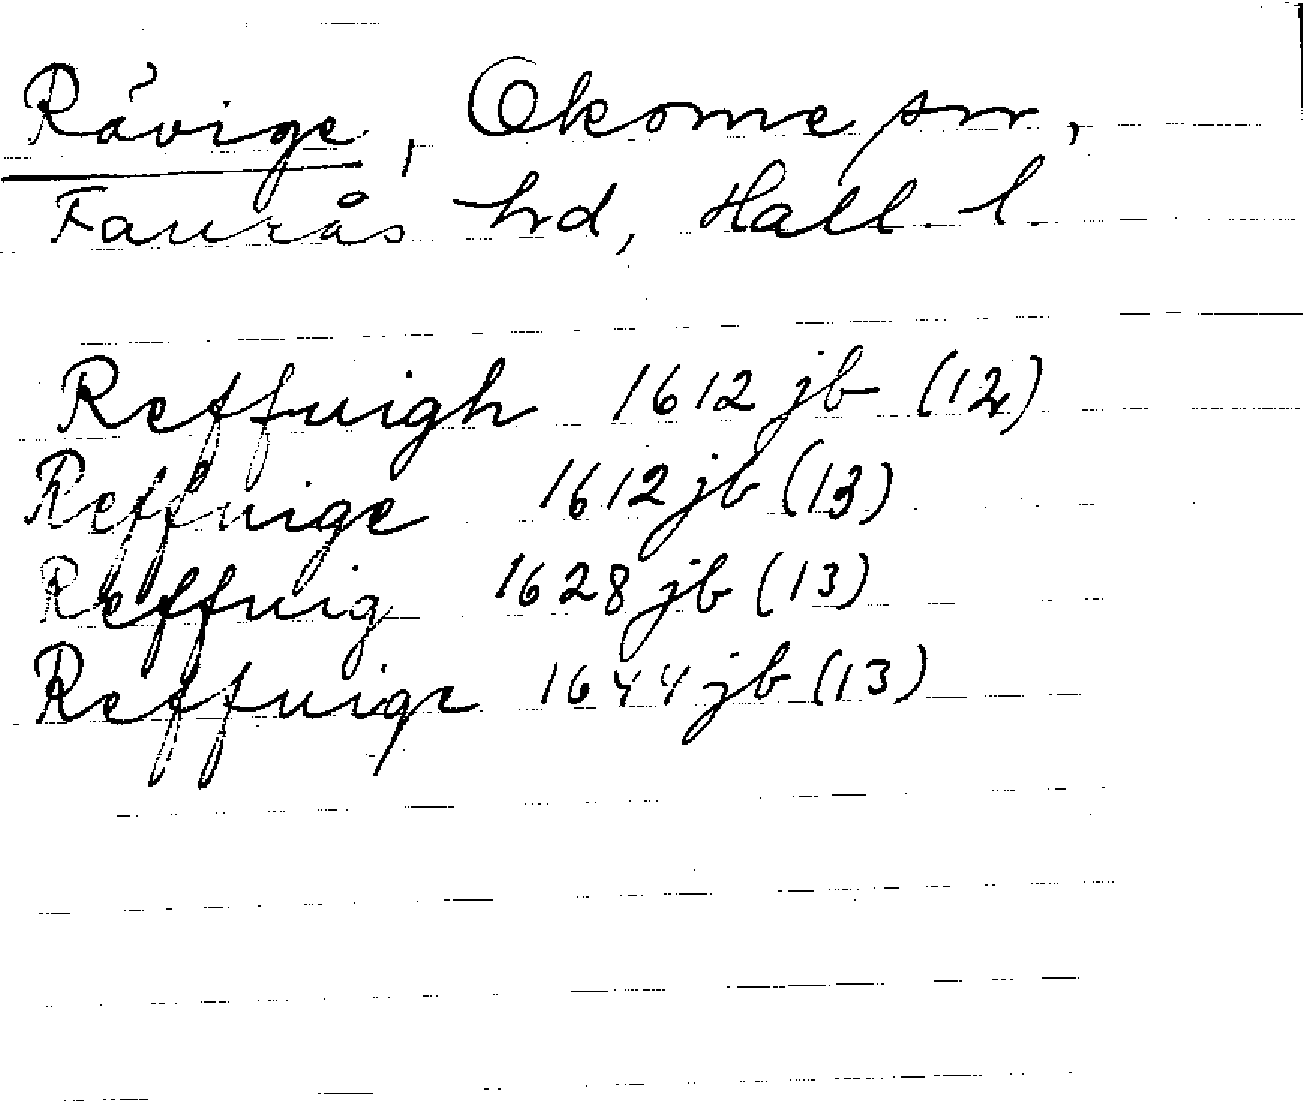 Rävige, Okome sn,
Faurås hrd, Hall. l.
Reffuigh 1612 jb (12)
Reffuige 1612 jb (13)
Reffuig 1628 jb (13)
Reffuige 1644 jb (13)